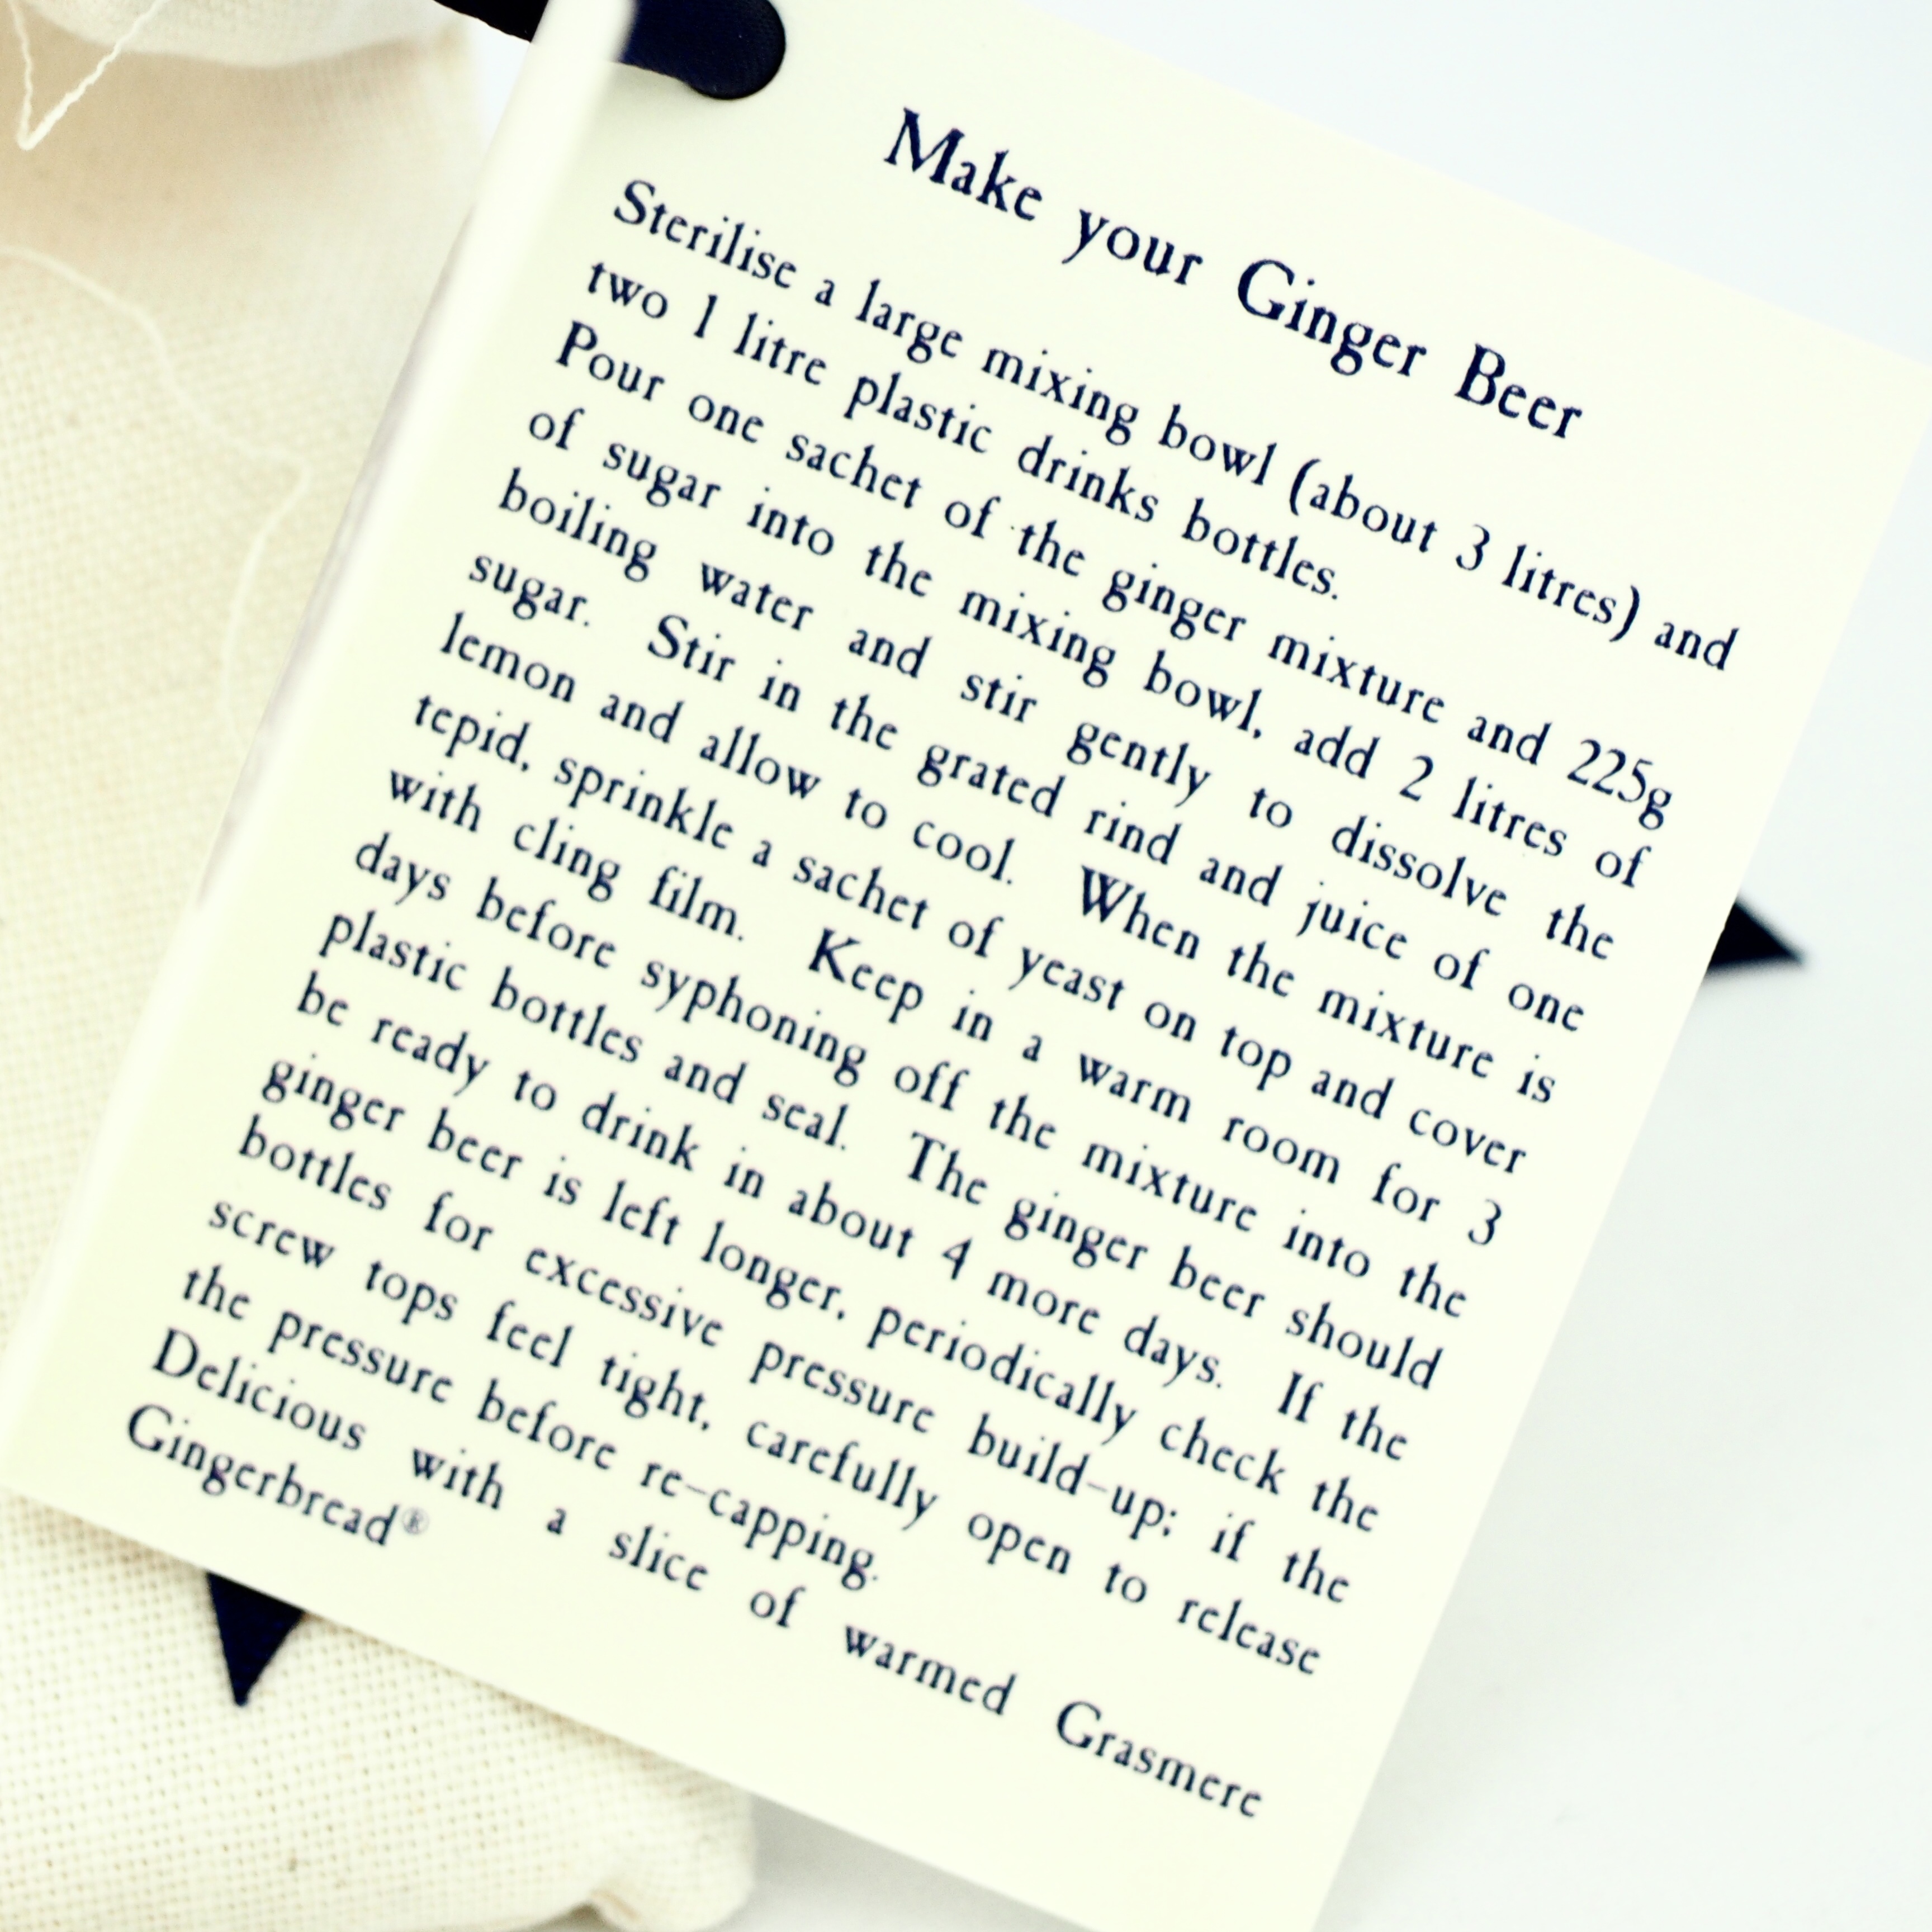 Make your Ginger Beer
Sterilise a large mixing bowl (about 3 litres) and
two 1 litre plastic drinks bottles.
Pour one sachet of the ginger mixture and 225g
of sugar into the mixing bowl, add 2 litres of
boiling water and stir gently to dissolve the
sugar. Stir in the grated rind and juice of one
lemon and allow to cool. When the mixture is
tepid, sprinkle a sachet of yeast on top and cover
with cling film. Keep in a warm room for 3
days before syphoning off the mixture into the
plastic bottles and seal. The ginger beer should
be ready to drink in about 4 more days. If the
ginger beer is left longer, periodically check the
bottles for excessive pressure build-up; if the
screw tops feel tight, carefully open to release
the pressure before re-capping.
Delicious with a slice of warmed Grasmere
Gingerbread®